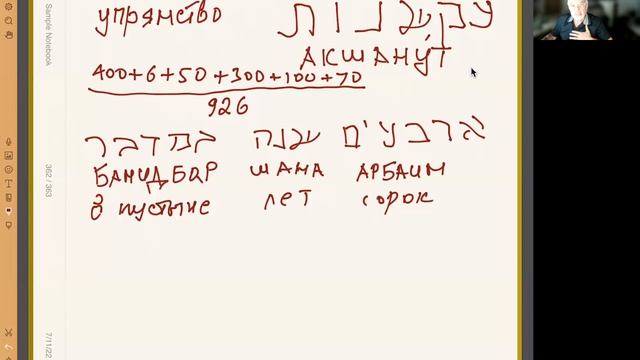 упрямство עקשנות
АКШАНУТ
400+6+50+300+100+70
926
ארבעים שנה במדבר
БАМИДБАР ШАНА АРБАИМ
в пустыне лет сорок
Sample Notebook
362 / 363
7/11/22